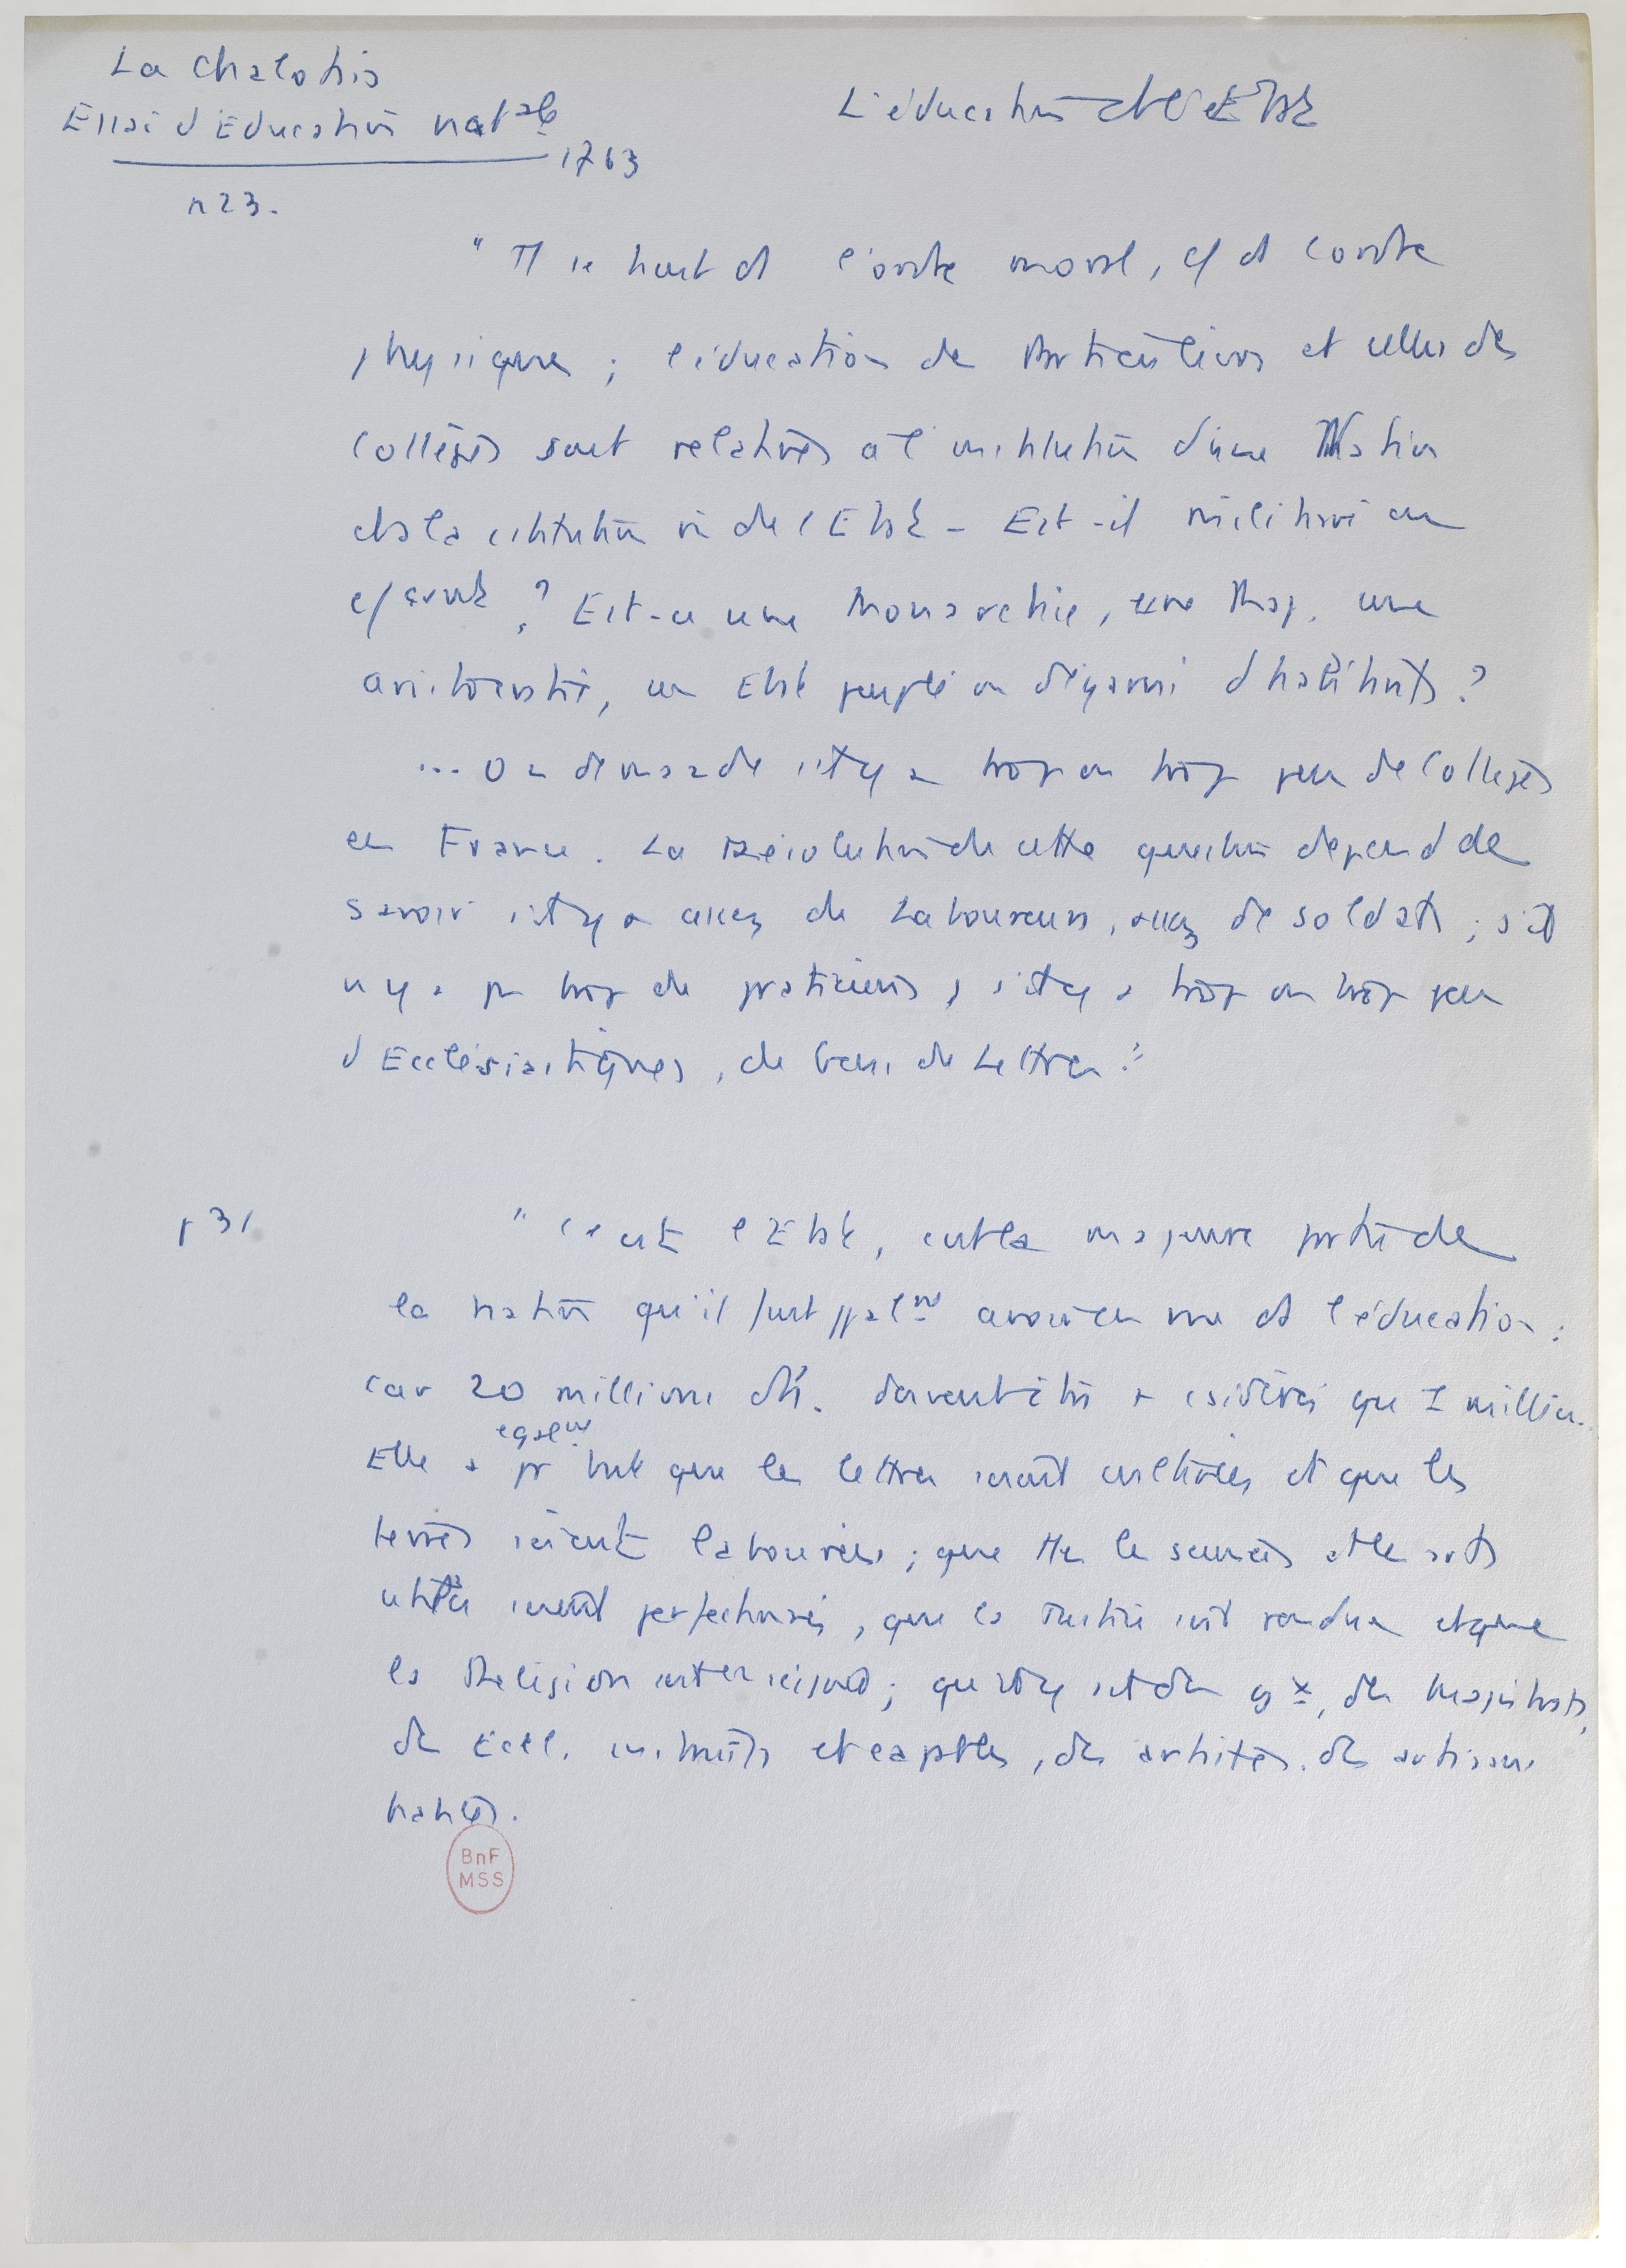 La Chalotais
Essai d'Education nat ale
1763
L'éducation et l'Etat
p 23.
"Tt se tient ds l'ordre moral, c/ ds l'ordre
physique ; l'éducation des Particuliers et celles des
Collèges sont relatives à l'institution d'une Nation
et à la cstitution de l'Etat – Est-il militaire ou
c/ ? Est-ce une Monarchie, une une
aristocratie, un Etat peuplé ou dégarni d'habitants ?
... On demande s'il y a trop ou trop peu de Collèges
en France. La Résolution de cette question dépend de
savoir s'il y a assez de Laboureurs, assez de soldats ; s'il
n'y a pas trop de praticiens, s'il y a trop ou trop peu
d'Ecclésiastiques, de Gens de Lettres."
p 31
"C'est l'Etat, c'est la majeure partie de
la nation qu'il faut ppalnt avoir en vue ds l'éducation :
car 20 millions d'h. doivent être + csidérés que 1 million.
egalnt
Elle a pr but que les lettres soient cultivées et que les
terres soient labourées ; que ttes les sciences et les arts
utiles soient perfectionnés, que la Justice soit rendue et que
la Religion soit enseignée ; qu'il y ait des gx, des Magistrats,
des Eccl. instruits et capables, des artistes, des artisans
habiles.
BnF
MSS